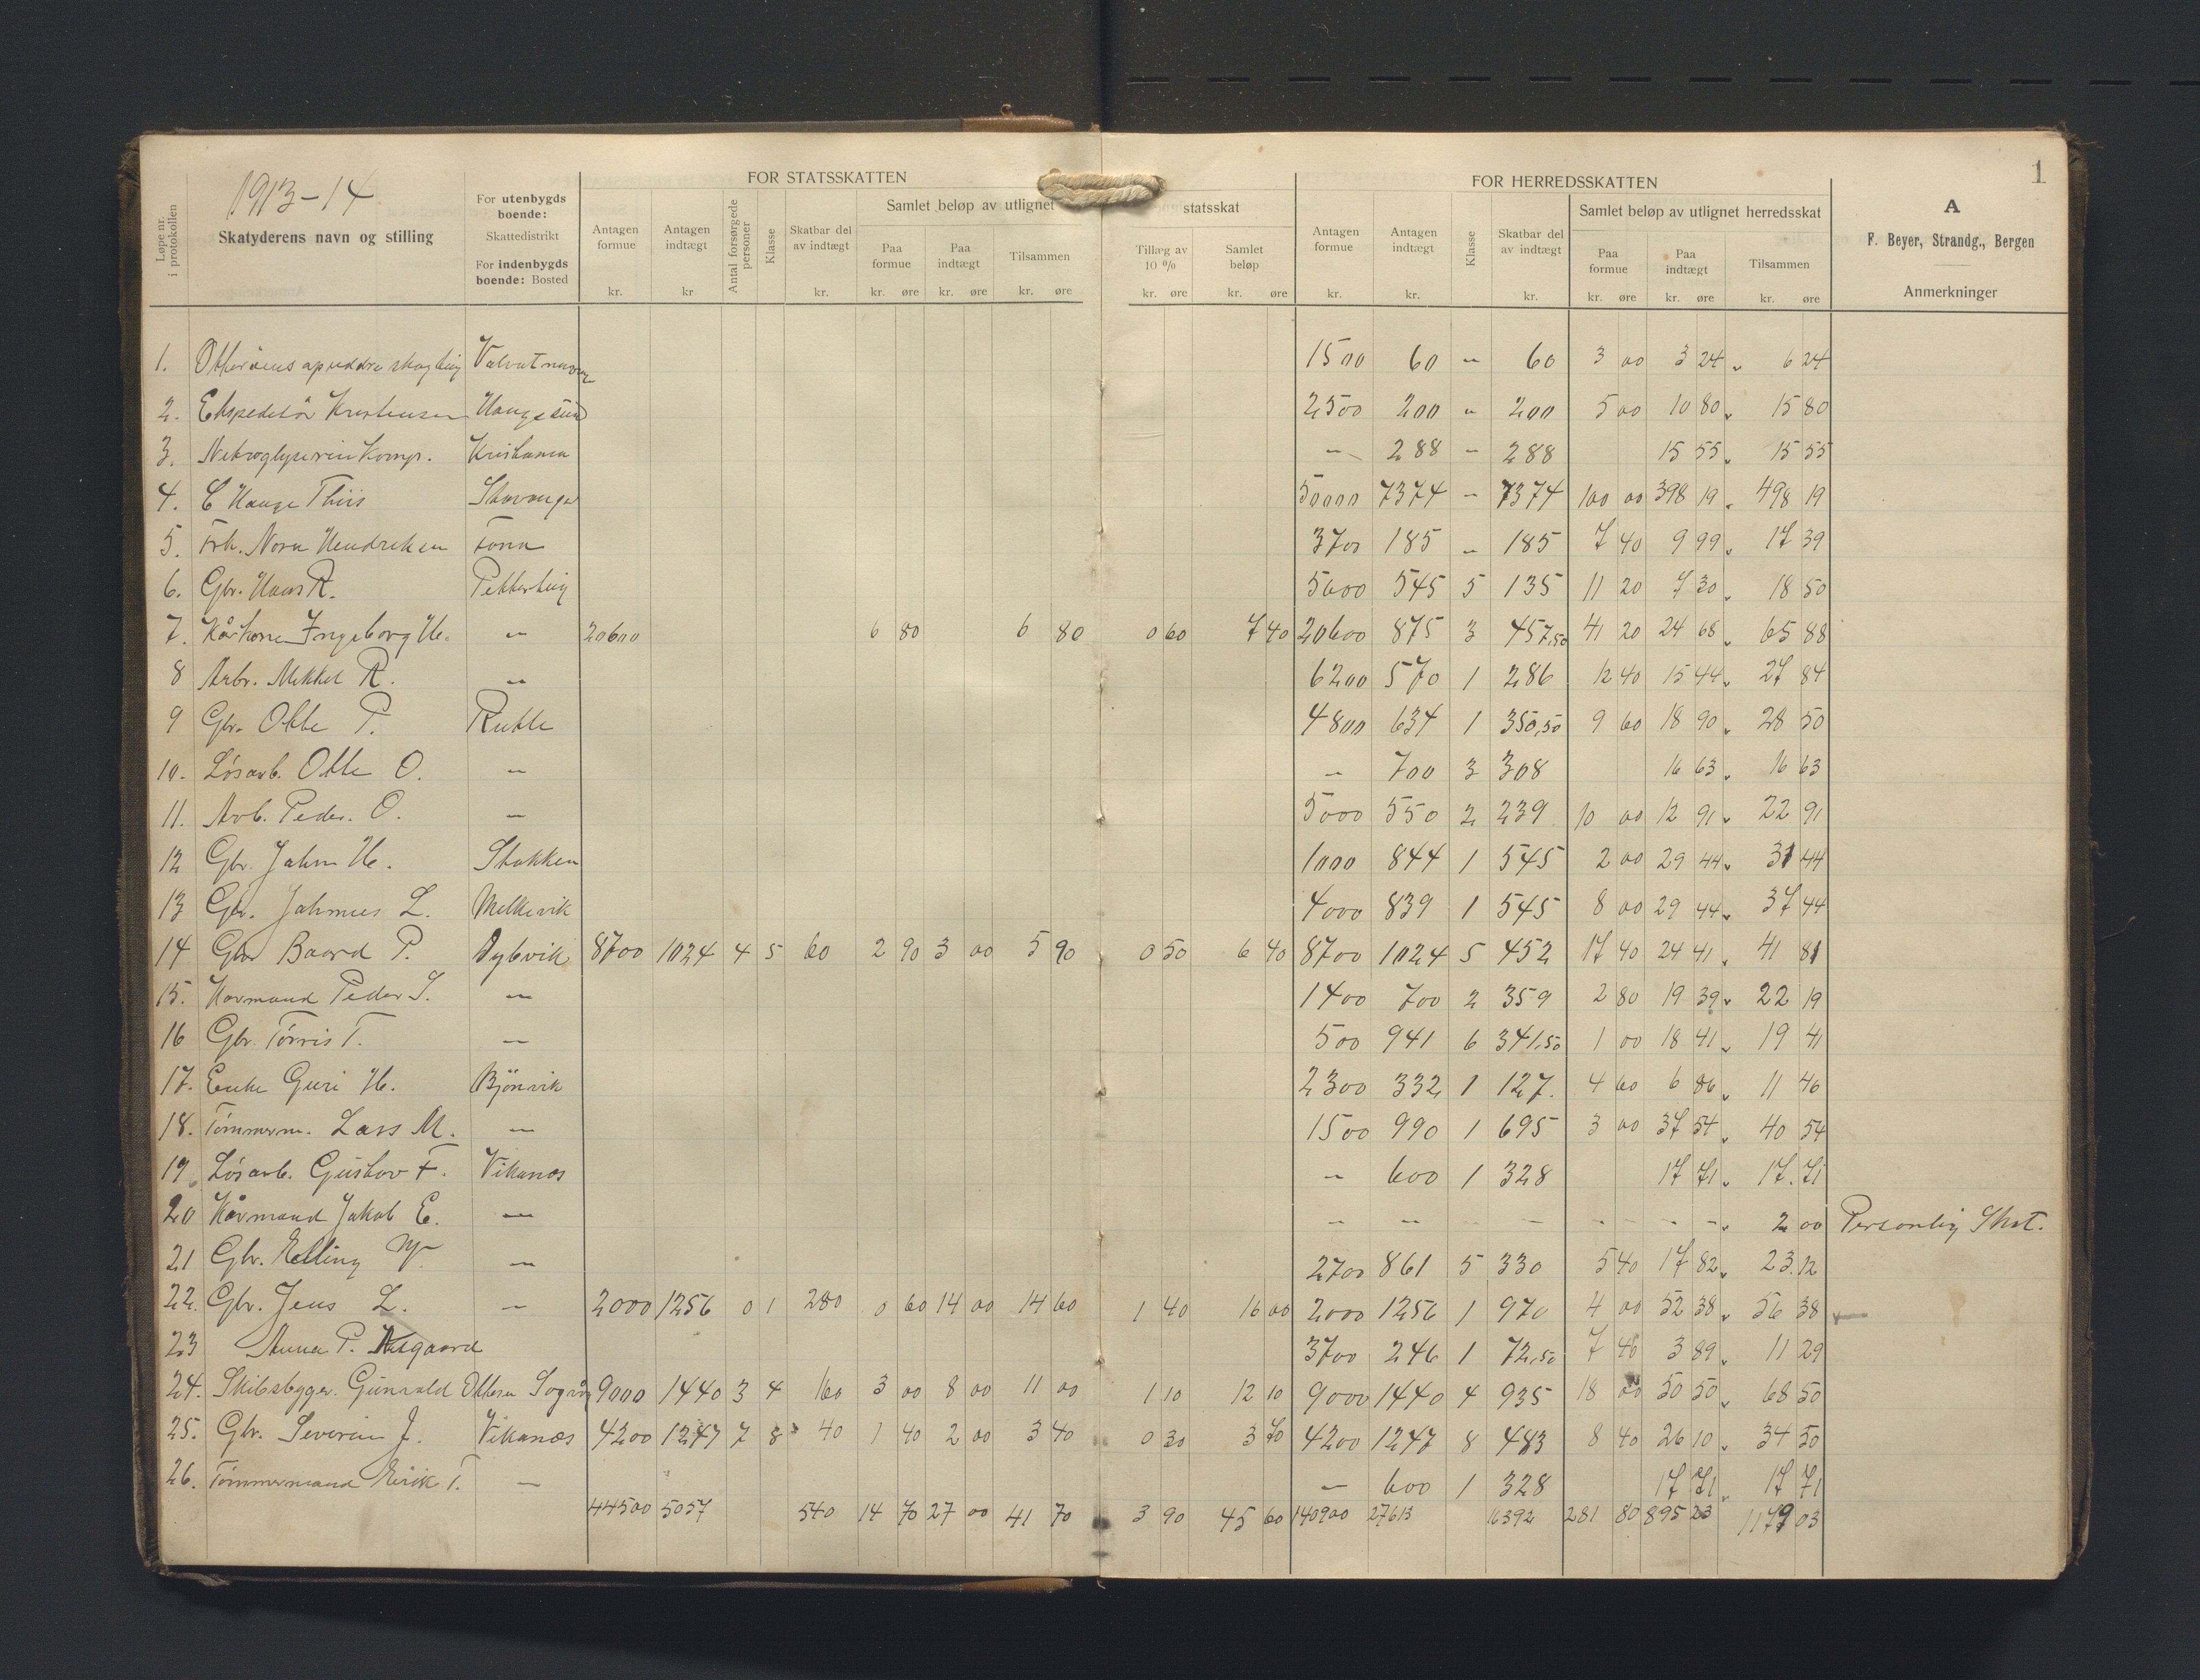 1
1913-14
Løpe nr. i protokollen
Skatyderens navn og stilling
For utenbygds boende: Skattedistrikt
For indenbygds boende: Bosted
FOR STATSSKATTEN
Antagen formue kr.
Antagen indtægt kr
Antal forsørgede personer
Klasse
Skatbar del av indtægt kr.
Samlet beløp av utlignet statsskat
Paa formue kr. øre
Paa indtægt kr. øre
Tilsammen kr. øre
Tillæg av 10 % kr. øre
Samlet beløp kr. øre
FOR HERREDSSKATTEN
Antagen formue kr.
Antagen indtægt kr.
Klasse
Skatbar del av indtægt kr.
Samlet beløp av utlignet herredsskat
Paa formue kr. øre
Paa indtægt kr. øre
Tilsammen kr. øre
A
F. Beyer, Strandg., Bergen
Anmerkninger
1. 1500 60 " 60 3 00 3 24 6 24
2. Ekspeditør Kristensen Haugesund 2500 200 " 200 5 00 10 80 15 80
3. Nitroglyserin Komp. Kristiania - 288 - 288 15 55 15 55
4. C Hauge Thiis Stavanger 50000 7374 - 7374 100 00 398 19 498 19
5. Frk. Nora Hendriksen 3700 185 - 185 7 40 9 99 17 39
6. Gbr. Hans R. 5600 545 5 135 11 20 7 30 18 50
7. Kårkone Ingeborg H. - 20600 6 80 6 80 0 60 7 40 20600 875 3 457,50 41 20 24 68 65 88
8 Arb. Mikkel R. - 6200 570 1 286 12 40 15 44 27 84
9 Gbr. Otte P. 4800 634 1 350,50 9 60 18 90 28 50
10. Løsarb. Otte O. - - 700 3 308 16 63 16 63
11. Arb. Peder. O. - 5000 550 2 239 10 00 12 91 22 91
12 Gbr. Jahn H. Stokken 1000 844 1 545 2 00 29 44 31 44
13 Gbr. Johannes L. Melkevik 4000 839 1 545 8 00 29 44 37 44
14 Gbr Baard P. Dybvik 8700 1024 4 5 60 2 90 3 00 5 90 0 50 6 40 8700 1024 5 452 17 40 24 41 41 81
15. Kårmand Peder S. - 1400 700 2 359 2 80 19 39 22 19
16 Gbr. Tørris T. - 500 941 6 341,50 1 00 18 41 19 41
17. Enke Guri H. Bjønvik 2300 332 1 127. 4 60 6 86 11 46
18. Tømmerm. Lars M. - 1500 990 1 695 3 00 37 54 40 54
19 Løsarb. Gustav F. Vikanes - 600 1 328 17 71 17.71
20 Kårmand Jakob E. - - - - - - - - - 2 00 Personlig Skat.
21 Gbr. Elling - 2700 861 5 330 5 40 17 82 23.12
22. Gbr. Jens L. - 2000 1256 0 1 280 0 60 14 00 14 60 1 40 16 00 2000 1256 1 970 4 00 52 38 56 38
23 Anna P. 3700 246 1 72,50 7 40 3 89 11 29
24. Skibsbygger. Gunvald Ottesen 9000 1440 3 4 160 3 00 8 00 11 00 1 10 12 10 9000 1440 4 935 18 00 50 50 68 50
25. Gbr. Severin J. Vikanes 4200 1247 7 8 40 1 40 2 00 3 40 0 30 3 70 4200 1247 8 483 8 40 26 10 34 50
26. Tømmermand Eirik T. - - 600 1 328 17 71 17 71
44500 5057 540 14 70 27 00 41 70 3 90 45 60 140900 27613 16392 281 80 895 23 1179 03